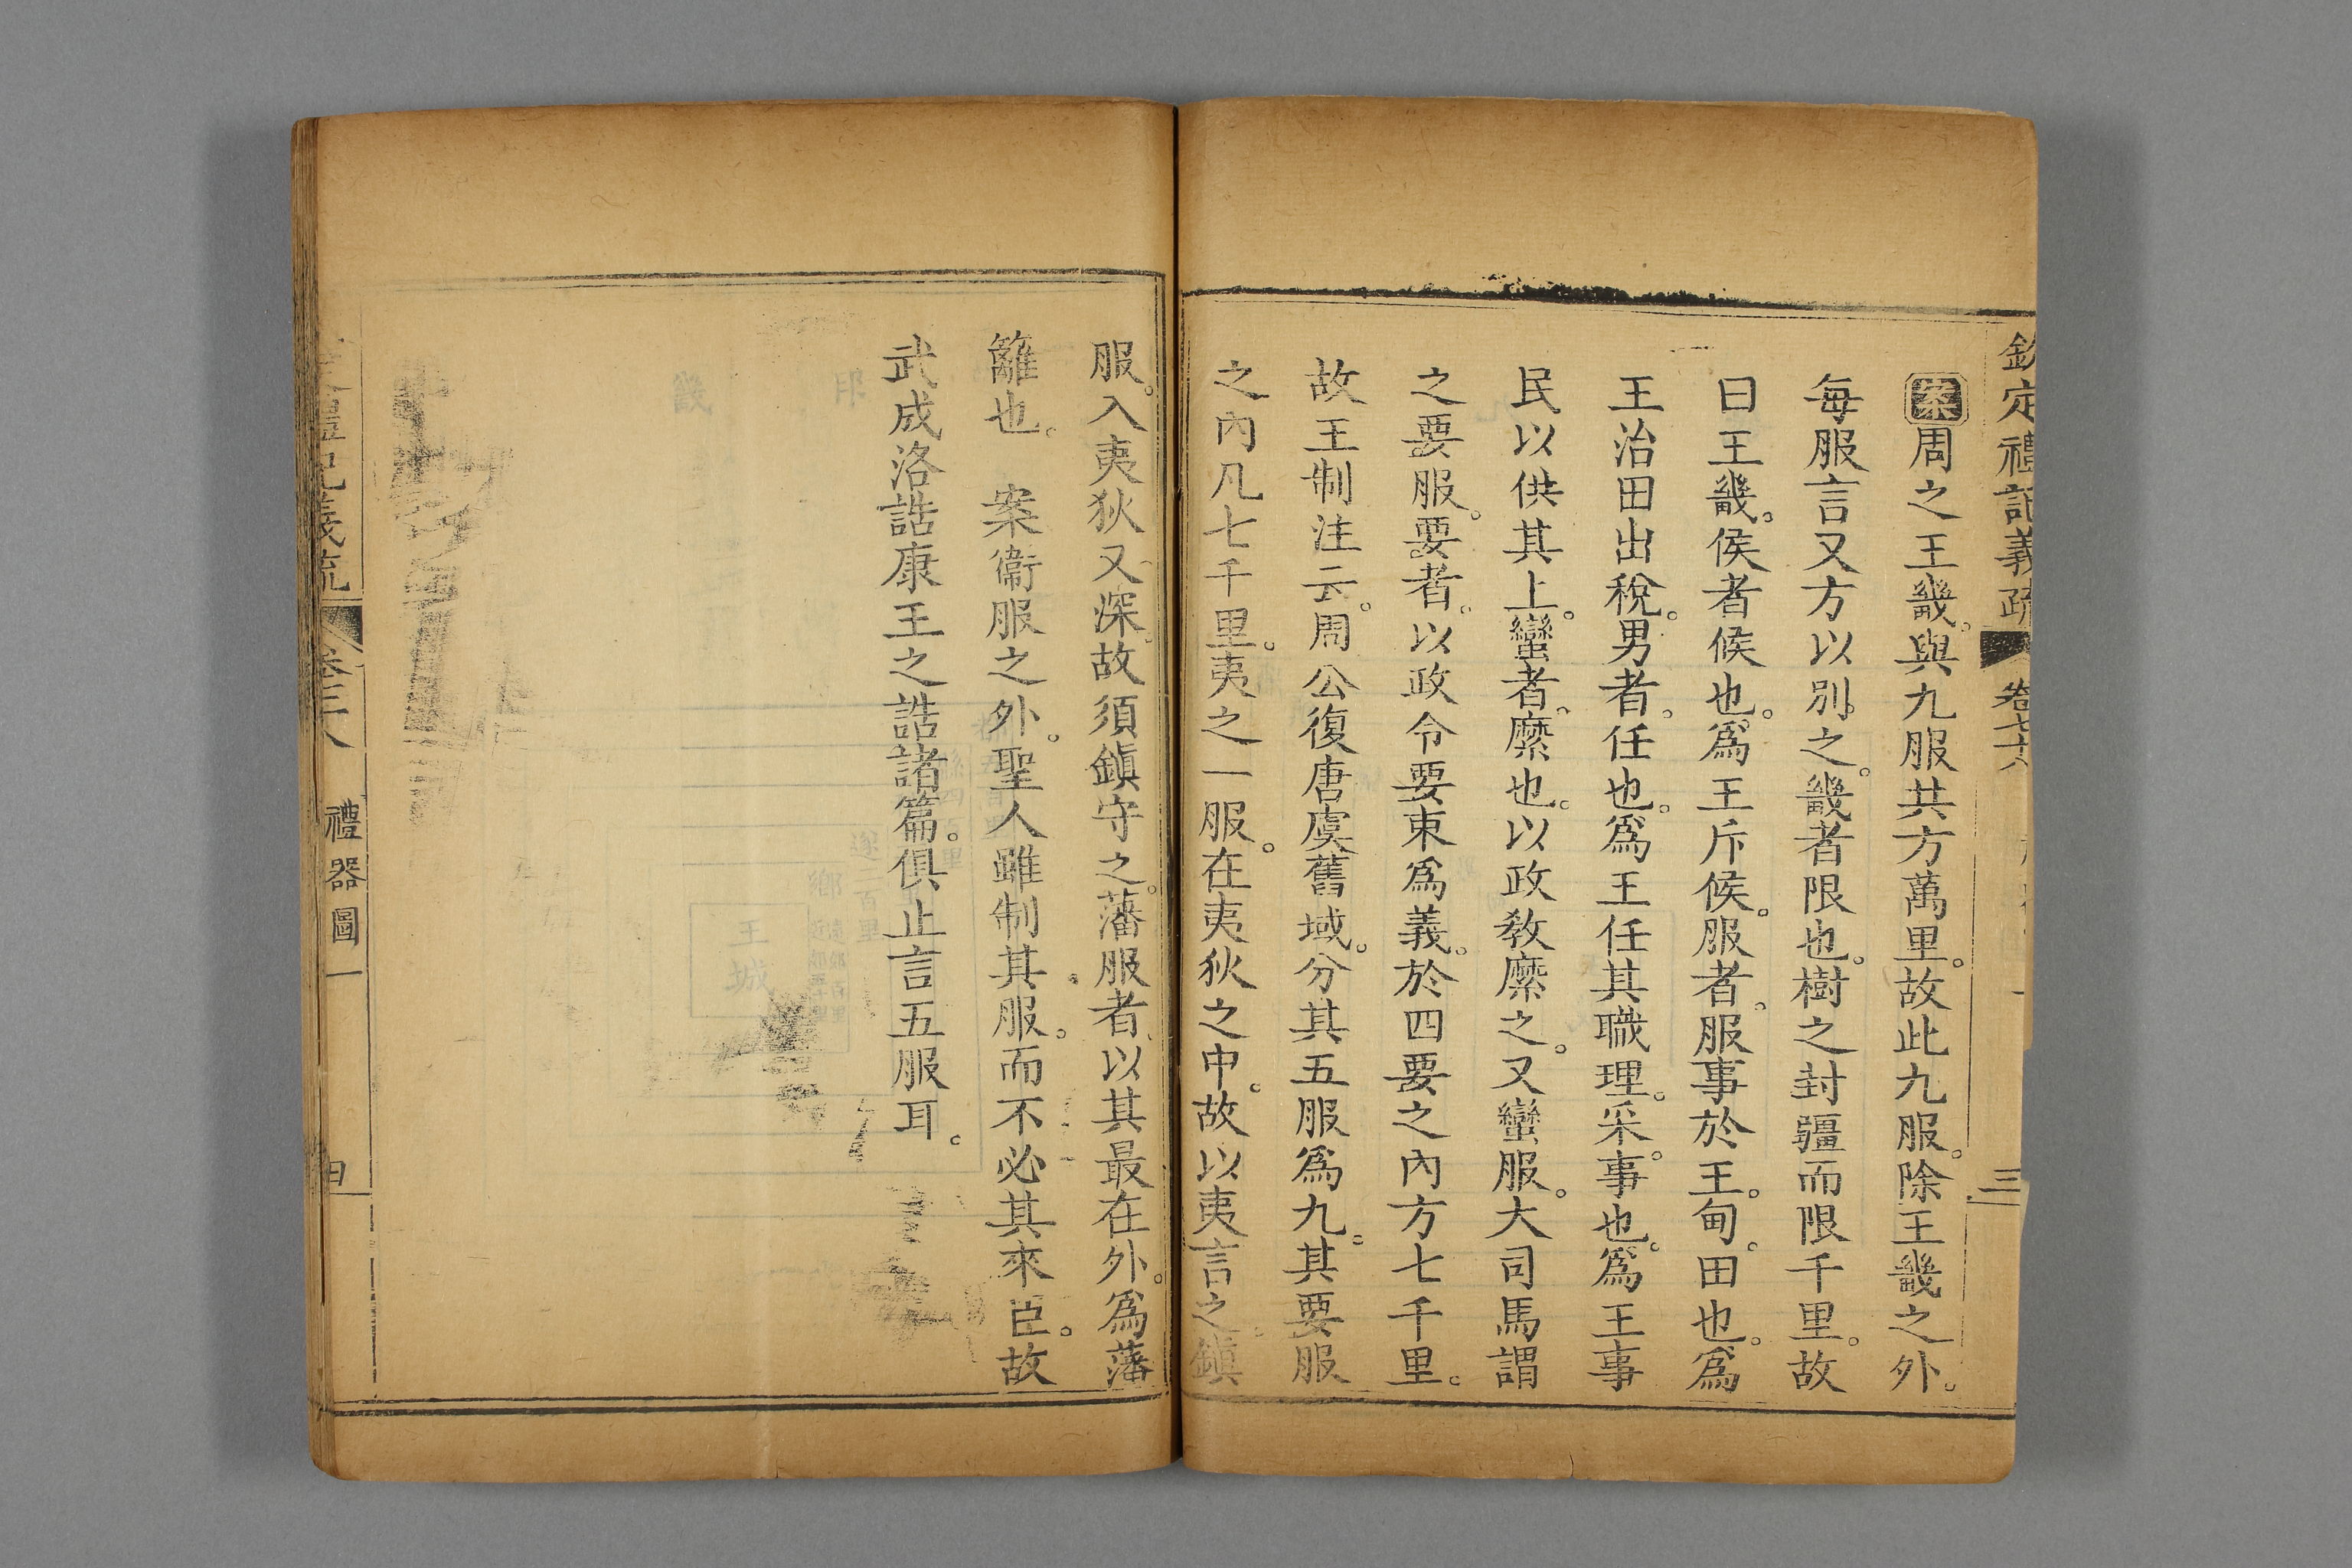 欽定禮記義疏 卷七十八 三
案周之王畿。與九服共方萬里。故此九服。除王畿之外。
每服言又方以別之。畿者限也。樹之封疆而限千里。故
曰王畿。侯者候也。爲王斥候。服者。服事於王。甸。田也。爲
王治田出稅。男者。任也。爲王任其職理。采。事也。爲王事
民以供其上。蠻者。縻也。以政教縻之。又蠻服。大司馬謂
之要服。要者。以政令要束爲義。於四要之內方七千里。
故王制注云。周公復唐虞舊域。分其五服爲九。其要服
之內凡七千里。夷之一服。在夷狄之中。故以夷言之。鎭
服。入夷狄又深。故須鎭守之。藩服者以其最在外。爲藩
籬也。 案衞服之外。聖人雖制其服。而不必其來臣。故
武成洛誥康王之誥諸篇。俱止言五服耳。
禮記義疏 禮器圖一